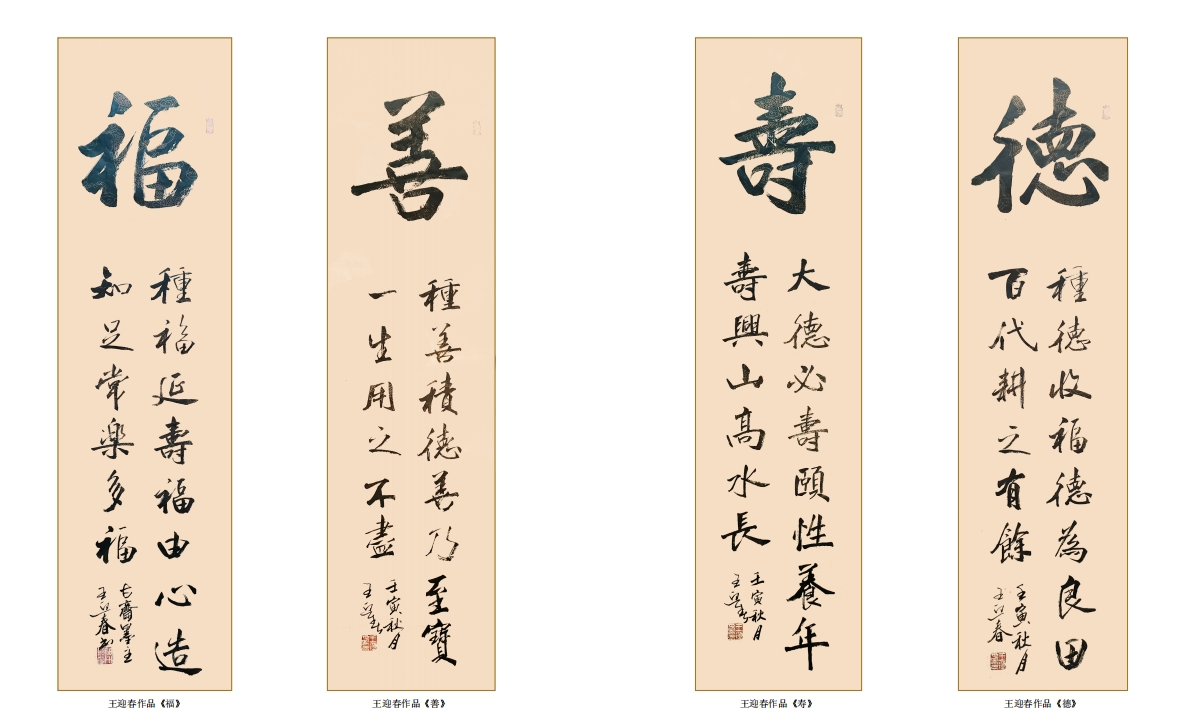 福
種福延壽福由心造
知足常樂多福
七齋墨主
王迎春书
王迎春作品《福》
善
種善積德善乃至寶
一生用之不盡
壬寅秋月
王迎春
王迎春作品《善》
壽
大德必壽頤性養年
壽興山高水長
壬寅秋月
王迎春
王迎春作品《寿》
德
種德收福德為良田
百代耕之有餘
壬寅秋月
王迎春
王迎春作品《德》